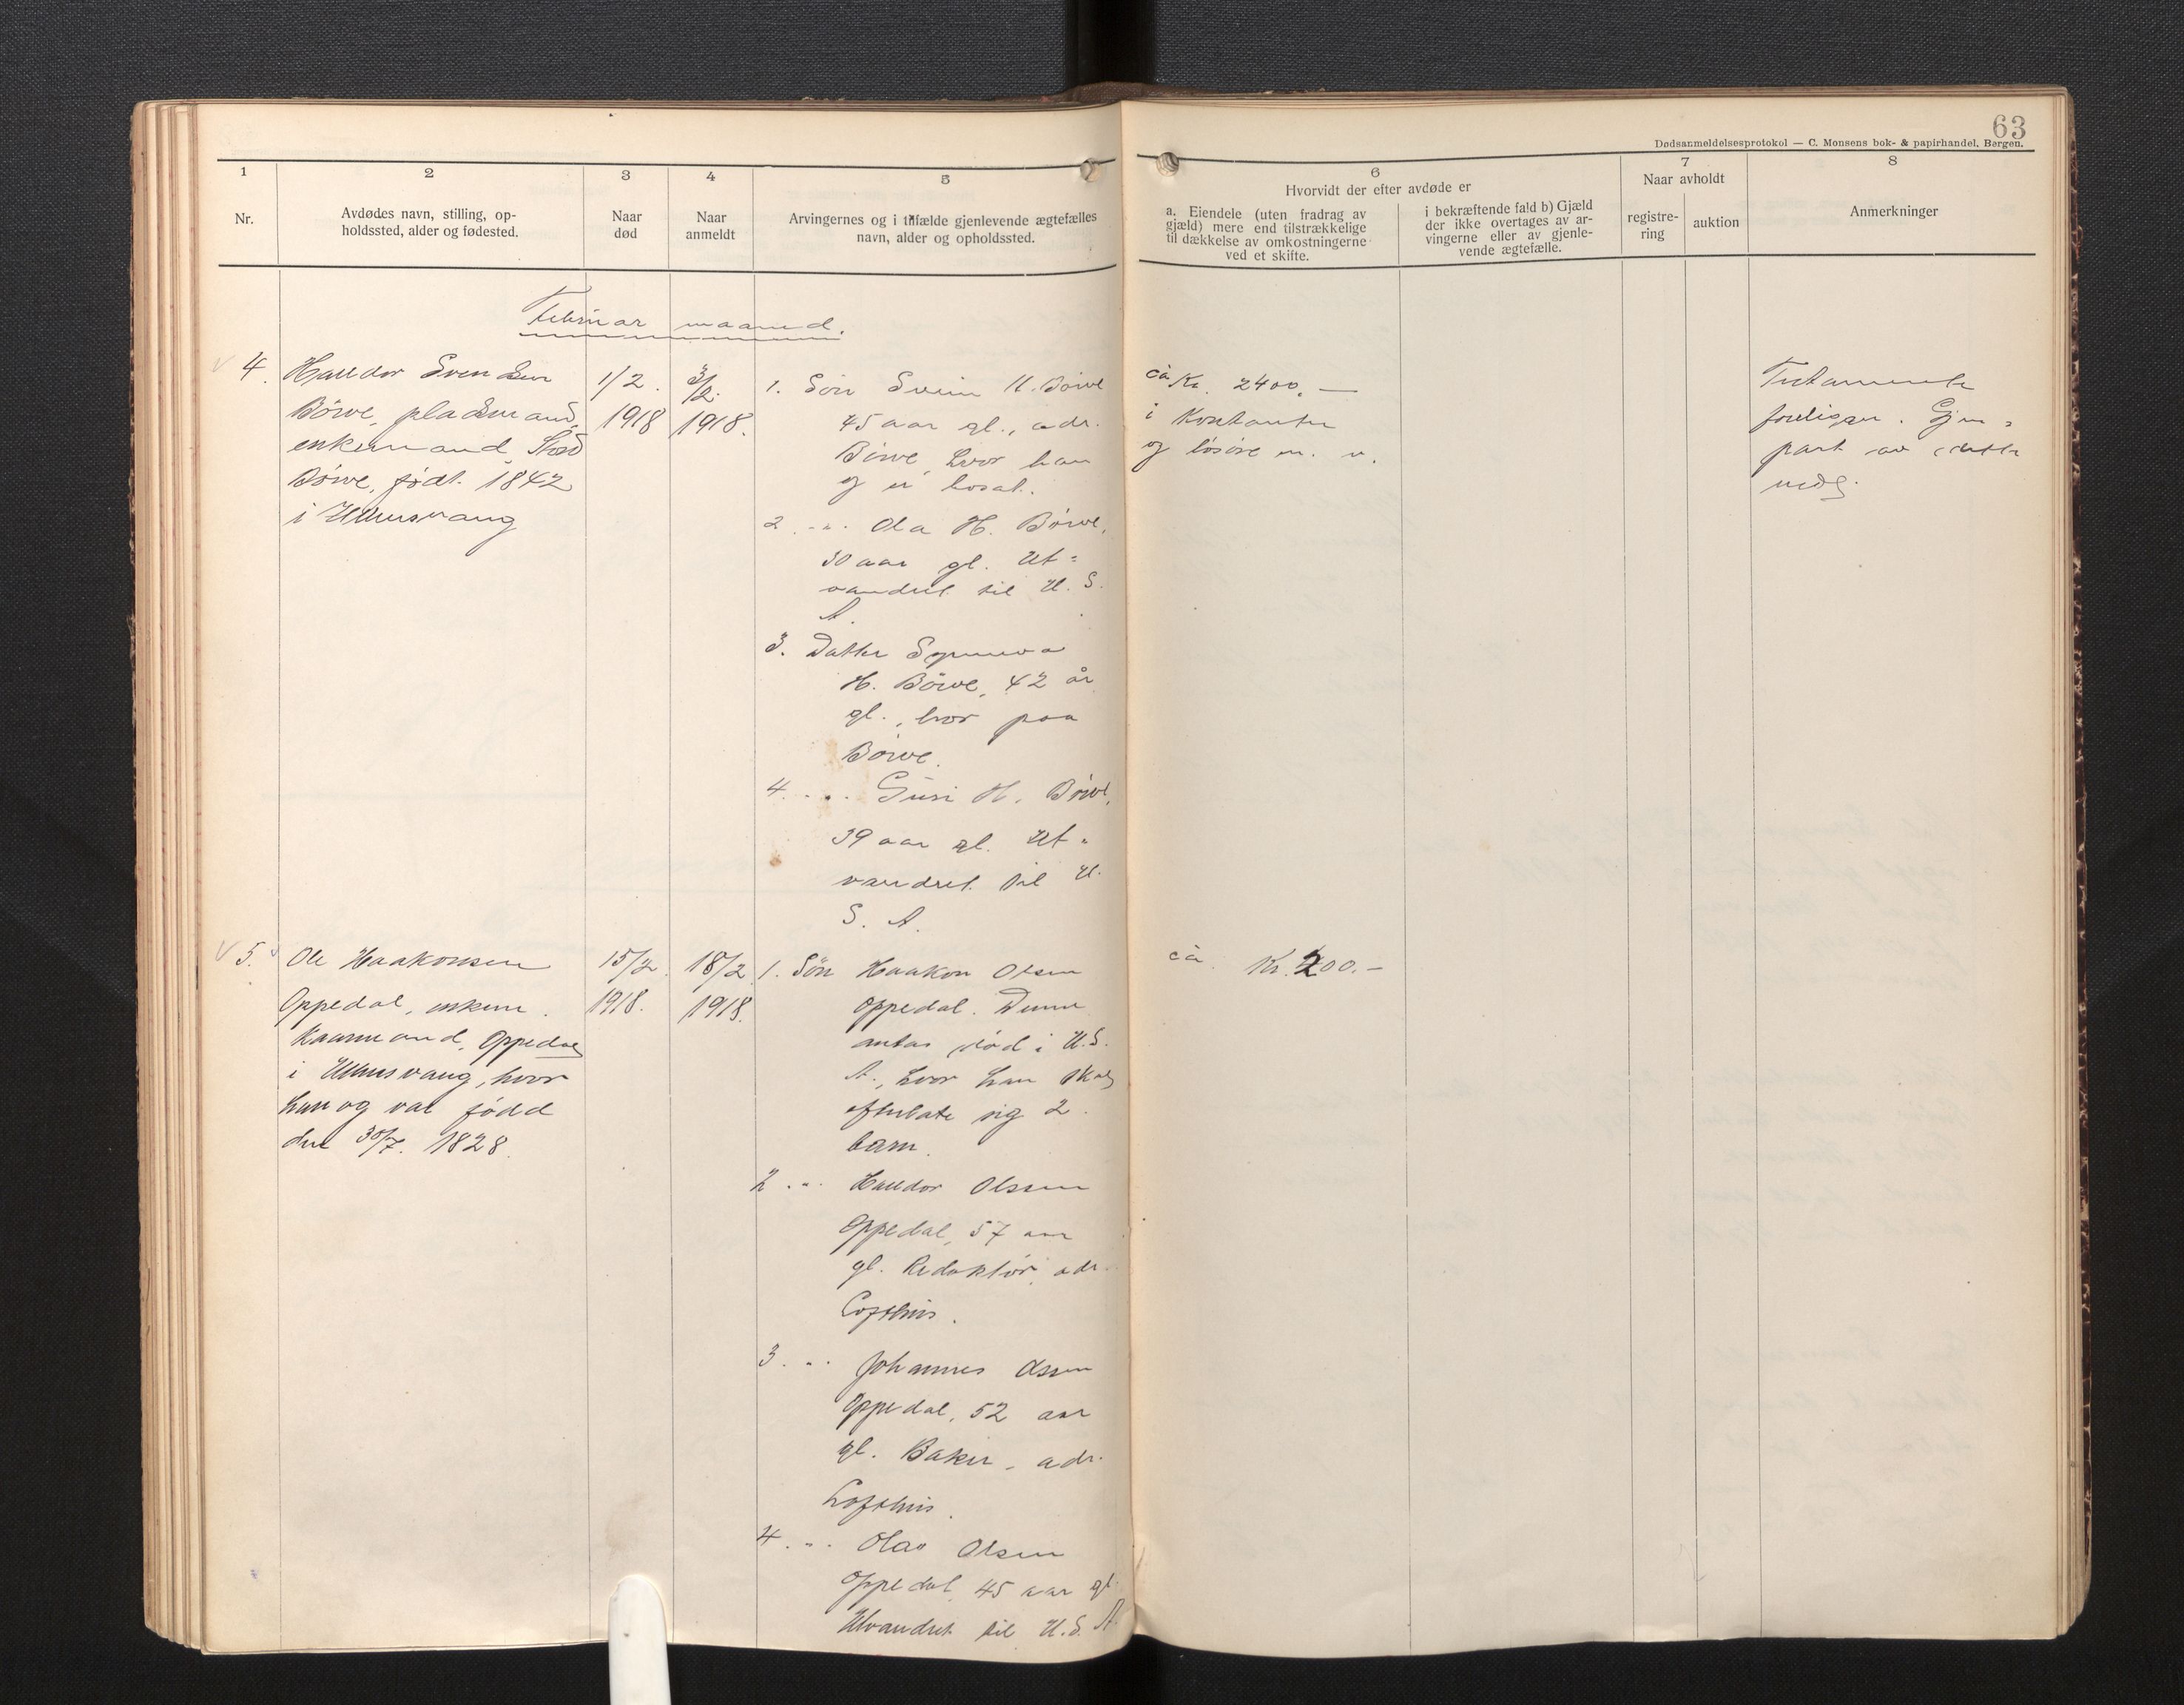 63
Dødsanmeldelsesprotokol — C. Monsens bok- & papirhandel, Bergen.
1
Nr.
2
Avdødes navn, stilling, op-
holdssted, alder og fødested.
3
Naar
død
4
Naar
anmeldt
5
Arvingernes og i tilfælde gjenlevende ægtefælles
navn, alder og opholdssted.
6
Hvorvidt der efter avdøde er
a. Eiendele (uten fradrag av
gjæld) mere end tilstrækkelige
til dækkelse av omkostningerne
ved et skifte.
i bekræftende fald b) Gjæld
der ikke overtages av ar-
vingerne eller av gjenle-
vende ægtefælle.
7
Naar avholdt
registre-
ring
auktion
8
Anmerkninger
Februar maaned.
4.
Halldor Svendsen
Börve, pladsmand,
enkemand
Börve, født 1842
i Ullensvang
1/2.
1918
3/2.
1918.
1. Sön Svein H. Börve
45 aar gl., adr.
Börve, hvor han
og er bosat.
2. -"- Ola H. Börve,
30 aar gl. Ut=
vandret til U. S.
A.
3. Datter Synneva
H. Börve, 42 år
gl., bor paa
Börve.
4. -"- Guri H. Börve,
39 aar gl. Ut=
vandret til U.
S. A.
ca Kr. 2400.—
i Kontanter
og lösöre m. v.
Testamente
foreligger. Gjen=
part av dette
vedl.
5.
Ole Haakonsen
Oppedal, enkem.
Kaarmand, Oppedal
i Ullensvang, hvor
han og var född
den 30/7. 1828.
15/2.
1918.
18/2
1918.
1. Sön Haakon Olsen
Oppedal. Denne
antas död i U.S.
A., hvor han skal
efterlate sig 2
barn.
2. -"- Halldor Olssen
Oppedal, 57 aar
gl. Redaktör, adr.
Lofthus.
3. -"- Johannes Olssen
Oppedal, 52 aar
gl. Baker, adr.
Lofthus.
4. -"- Olav Olsen
Oppedal, 45 aar gl.
Utvandret til U.S. A.
ca. Kr. 200.-